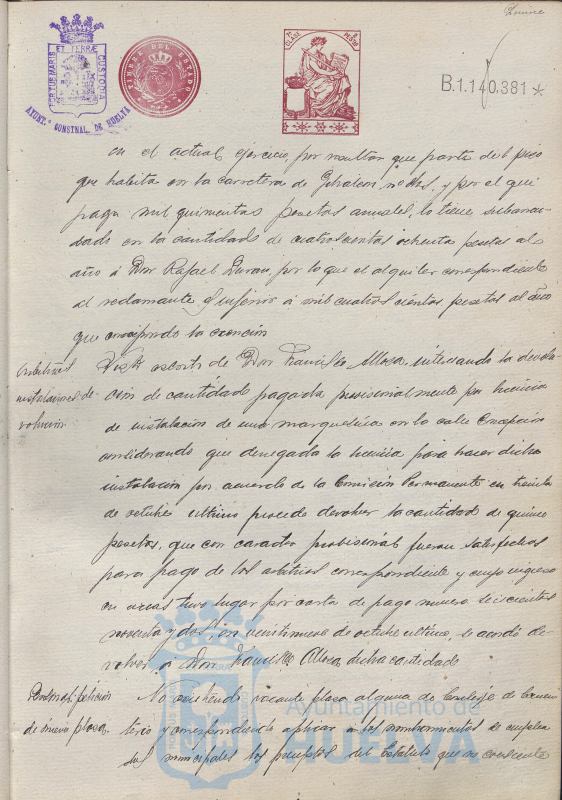 PORTUS MARIS ET TERRÆ CUSTODIA
AYUNT.º CONSTNAL. DE HUELVA
TIMBRE DEL ESTADO
7ª CLASE
PESO
B.1.140.381 *
en el actual ejercicio, por resultar que parte del piso
que habita en la carretera de Gibraleon, y por el que
paga mil quinientas pesetas anuales, lo tiene subarren-
dado en la cantidad de cuatrocientas ochenta pesetas al
año á Don Rafael Duran, por lo que el alquiler correspondiente
al reclamante es inferior á mil cuatrocientas pesetas al año
que comprende la exención
Arbitrios
instalaciones de-
volución
Visto escrito de Don Francisco, interesando la devolu-
ción de cantidad pagada provisionalmente por licencia
de instalación de una marquesina en la calle Concepción
considerando que denegada la licencia para hacer dicha
instalación por acuerdo de la Comisión Permanente en treinta
de octubre último procede devolver la cantidad de quince
pesetas, que con caracter provisional fueron satisfechas
para pago de los arbitrios correspondiente y cuyo ingreso
en arcas tuvo lugar por carta de pago numero seiscientos
noventa y dos, en veintinueve de octubre último, se acordó de-
volver, á Don Francisco dicha cantidad
Personal: petición
de nueva plaza.
No existiendo vacante plaza alguna de Conserje de Cemen-
terio y correspondiendo aplicar a los nombramientos de emplea-
dos municipales los preceptos del Estatuto que no consiente
Ayuntamiento de
HUELVA